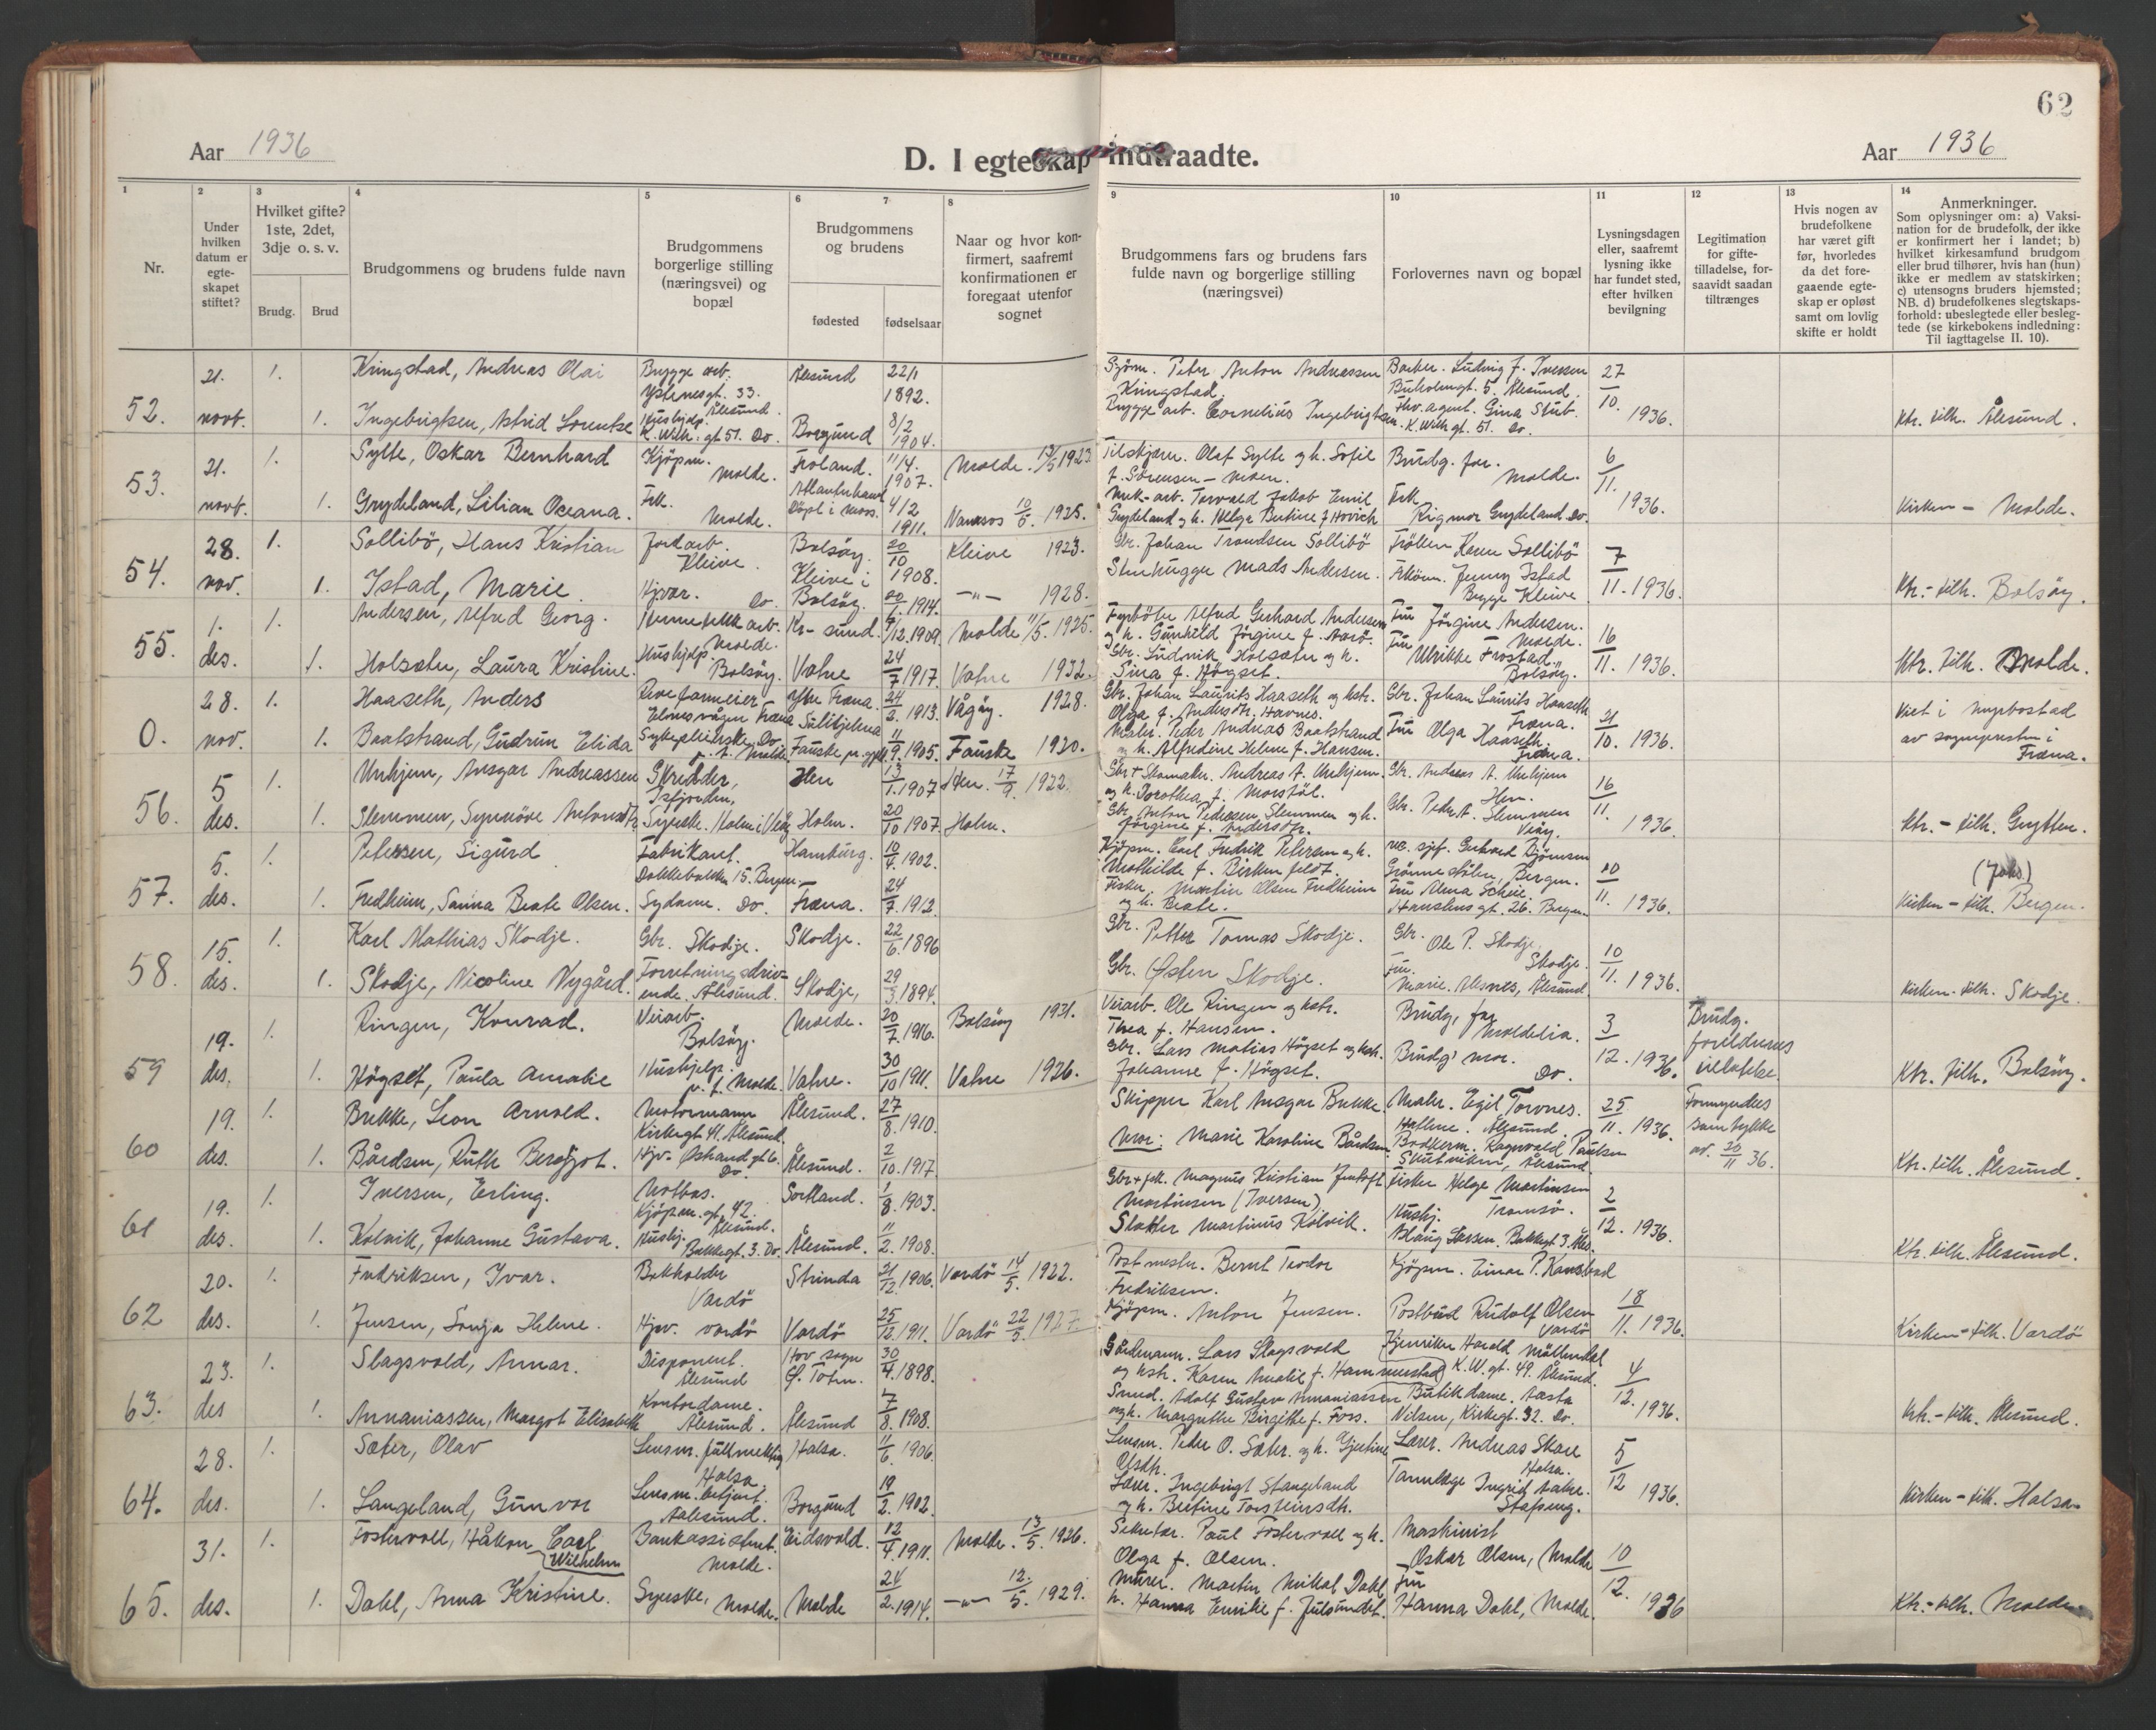 62
Aar 1936
D. I egteskap indtraadte.
Aar 1936
1
2 Under hvilken datum er egteskapet stiftet?
3 Hvilket gifte? 1ste, 2det, 3dje o. s. v.
4
5
6
7
8
9
10
11
12
13
14
Nr.
Brudg. Brud
Brudgommens og brudens fulde navn
Brudgommens borgerlige stilling (næringsvei) og bopæl
Brudgommens og brudens
fødested fødselsaar
Naar og hvor konfirmert, saafremt konfirmationen er foregaat utenfor sognet
Brudgommens fars og brudens fars fulde navn og borgerlige stilling (næringsvei)
Forlovernes navn og bopæl
Lysningsdagen eller, saafremt lysning ikke har fundet sted, efter hvilken bevilgning
Legitimation for giftetilladelse, forsaavidt saadan tiltrænges
Hvis nogen av brudefolkene har været gift før, hvorledes da det foregaaende egteskap er opløst samt om lovlig skifte er holdt
Anmerkninger.
Som oplysninger om: a) Vaksination for de brudefolk, der ikke er konfirmert her i landet; b) hvilket kirkesamfund brudgom eller brud tilhører, hvis han (hun) ikke er medlem av statskirken; c) utensogns bruders hjemsted; NB. d) brudefolkenes slegtskapsforhold: ubeslegtede eller beslegtede (se kirkebokens indledning: Til iagttagelse II. 10).
52. 21. novt. 1. Kringstad, Andreas Olai Brygge arb. Ystenesgt. 33. Ålesund Ålesund 22/1 1892. Sjöm. Peter Anton Andreassen Kringstad. Ludvig J. Iversen 5. Ålesund. 27/10. 1936. Ktr. tilh. Ålesund.
1. Ingebrigtsen, Astrid Hushjelp. K. Wilh. gt 51. Do. Borgund 8/2 1904. Brygge arb. Cornelius Ingebrigtsen. agent. Gina Stub. K. Wilh gt. 51. Do.
53. 21. novt. 1. Sylte, Oskar Bernhard Kjöpm. Molde. 11/4. 1907. Molde. 13/5 1923 Olaf Sylte og h. Sofie f. Sörensen - Moen. Brudg. far. Molde. 6/11. 1936. Kirken - Molde.
1. Grydeland, Lilian Oceana. Frk. Molde. Döpt i Moss. 4/2 1911. 10/5. 1925. Torvald Jakob Emil Grydeland og h. Helga Bertine f. Frk. Rigmor Grydeland Do.
54. 28. nov. 1. Sollibö, Hans Kristian Jordarb. Kleive. Bolsöy. 20/10 1908. Kleive 1923. Gbr. Johan Trondsen Sollibö Fröken Karen Sollibö 7/11. 1936. Ktr. - tilh. Bolsöy.
1. Istad, Marie. Hjvær. Do. Kleive i Bolsöy. 1914. —"— 1928. Stenhugger Mads Andersen. Jenny Istad Begge Kleive
55. 1. des. 1. Andersen, Alfred Georg. Molde. Kr-sund. /12. 1909. Molde 11/5. 1925. Alfred Gerhard Andersen og h. Gunhild Jörgine f. Aarö. Fru Jörgine Andersen. Molde. 16/11. 1936. Ktr. tilh. Molde.
1. Holsæter, Laura Kristine. Hushjelp. Bolsöy. Vatne 24/7 1917. Vatne 1932. Gbr. Ludvik Holsæter og h. Sina f. Högset. Fru Ulrikke Frostad. Bolsöy.
0. 28. nov. 1. Haaseth, Anders Elnesvågen Fræna Ytre Fræna. 24/2. 1913. Vågöy. 1928. Gbr. Johan Laurits Haaseth og hstr. Olga f. Andersdtr. Havnes. Gbr. Johan Laurits Haaseth Fræna. 21/10. 1936. Viet i av sognepresten i Fræna.
1. Baatstrand, Gudrun Elida Sykepleierske. Do p. t. Molde. Sulitjelma Fauske 11/9. 1905. Fauske 1920. Maler. Peder Andreas Baatstrand og h. Alfredine Helene f. Hansen. Fru Olga Haaseth. Fræna.
56. 5 des. 1. Unhjem, Ansgar Andreassen Skredder, Isfjorden, Hen 13/1. 1907 Hen. 17/9. 1922. Gbr + Skomaker. Andreas A. Unhjem. og h. Dorothea f. Morstöl. Gbr. Andreas A. Unhjem Hen. 16/11. 1936. Ktr. - tilh. Grytten.
1. Slemmen, Synnöve Antonsdtr. Syerske. Holm i Veöy Holm. 20/10 1907. Holm. Gbr. Anton Pedersen Slemmen og h. Jörgine f. Andersdtr. Gbr. Peder A. Slemmen Veöy.
57. 5. des. 1. Petersen, Sigurd Fabrikant. Dokkebakken 15. Bergen. Hamburg. 10/4. 1902. Kjöpm. Carl Fredrik Petersen og h. Mathilde f. Birkenfeldt. Gerhard Björnsen Bergen. 10/11. 1936. Kirken - tilh. Bergen.
1. Fredheim, Sanna Beate Olsen. Sydame. Do. Fræna. 24/7. 1912. Fisker. Martin Olsen Fredheim og h. Beate. Fru Alma Scheie, gt. 26. Bergen
58. 15. des. 1. Karl Mathias Skodje. Gbr. Skodje. Skodje. 22/6. 1896 Gbr. Petter Tomas Skodje. Gbr. Ole P. Skodje, Skodje. 10/11. 1936. Kirken - tilh. Skodje.
1. Skodje, Nicoline Nygård. Forretningsdrivende. Ålesund. Skodje, 29/3. 1894. Gbr. Østen Skodje. Fru. Marie Alsnes, Ålesund
59 19. des. 1. Ringen, Konrad. Veiarb. Bolsöy. Molde. 20/7. 1916. Bolsöy 1931. Veiarb. Ole Ringen og hstr. Thea f. Hansen. Brudg. far Moldelia. 3/12. 1936. Brudg. foreldrenes tillatelse. Ktr. tilh. Bolsöy.
1. Högset, Paula Amalie Hushjelp. p. t. Molde Vatne. 30/10 1911. Vatne 1926. Gbr. Lars Matias Högset og hstr. Johanne f. Högset. Brudg's mor. Do.
60 19. des. 1. Brekke, Leon Arnold. Motormann Kirkegt. 41. Ålesund. Ålesund. 27/8. 1910. Skipper Karl Ansgar Brekke. Maler. Egil Torvnes. Ålesund. 25/11. 1936. Formynders samtykke av. 20/11 36. Ktr. tilh. Ålesund.
1. Bårdsen, Ruth Bergljot. Hjv. Do. Ålesund. 2/10. 1917 Mor: Marie Karoline Bårdsen. Ragnvald Paulsen Skutviken, Ålesund.
61 19. des. 1. Iversen, Erling. Kjöpm. gt. 42. Ålesund. Sortland. 1/8. 1903. Magnus Kristian Martinsen (Iversen) Fisker Helge Martinsen Tromsö. 2/12. 1936. Ktr. tilh. Ålesund.
1. Kolvik, Johanne Gustava. Hushj. Bakkegt. 3. Do. Ålesund. 11/2. 1908. Slakter Martinus Kolvik. Hushj. Larsen. Bakkegt 3. Åles.
62 20. des. 1. Fredriksen, Ivar. Bokholder Vardö Strinda 21/12. 1906. Vardö 14/5. 1922. Postmester. Bernt Teodor Fredriksen. Kjöpm. Einar P. 18/11. 1936. Kirken - tilh. Vardö
1. Jensen, Sonja Helene. Hjv. Vardö Vardö 25/12. 1911. Vardö 22/5. 1927. Kjöpm. Anton Jensen. Postbud Rudolf Olsen Vardö
63. 23. des 1. Slagsvold, Annar. Disponent. Ålesund Hov sogn Ø. Toten. 30/4. 1898. Gårdmann. Lars Slagsvold og hstr. Karen Amalie f. Hammerstad Harald Möllerdal K. W. gt. 49. Ålesund. 4/12. 1936. Ktr. - tilh. Ålesund.
1. Annaniassen, Margot Elisabeth Kontordame. Ålesund. Ålesund 7/8. 1908. Smed. Adolf Gustav Annaniassen og h. Margrethe Birgitte f. Foss. Butikdame. Aasta Nilsen, Kirkegt. 32. Do.
64. 28. des. 1. Sæter, Olav Lensm. fullmektig Halsa Halsa. 11/6. 1906. Lensm. Peder O. Sæter. og h. Gjertine Olsdtr. Lærer. Andreas Skare Halsa. 5/12 1936. Kirken - tilh. Halsa
1. Langeland, Gunvor Lensm. betjent. Aalesund. Borgund 19/2. 1902. Lærer. Ingebrigt Stangeland og h. Bertine Torsteinsdtr. Tannlege Ingrid Aakre. Stafseng.
65. 31. des. 1. Fostervoll, Håkon Carl Wilhelm Bankassistent. Molde. Eidsvold. 12/4. 1911. Molde. 13/5. 1926. Sekretær. Paul Fostervoll og h. Olga f. Olsen. Maskinist Oskar Olsen, Molde 10/12. 1936 Ktr. - tilh. Molde
1. Dahl, Anna Kristine. Syerske, Molde. Molde 24/2. 1914. —"— 12./5. 1929. Murer. Martin Mikal Dahl h. Hanna Emilie f. Julsundet. Fru Hanna Dahl, Molde.